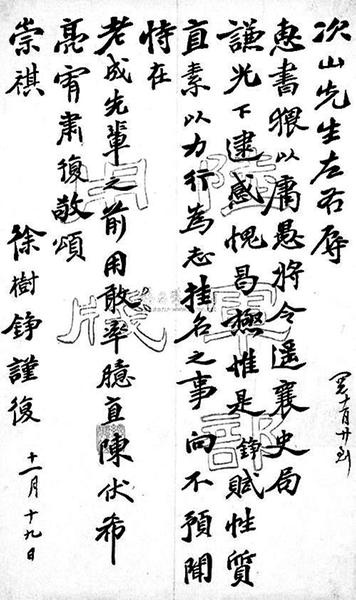 次山先生左右辱
惠書猥以庸愚將令遥襄史局
謙光下逮感愧曷極惟是錚賦性質
直素以力行為志挂名之事向不預聞
恃在
老成先輩之前用敢率臆直陳伏希
亮宥肅復敬頌
崇祺
徐樹錚謹復
十一月十九日
陸軍部用牋
十月廿到